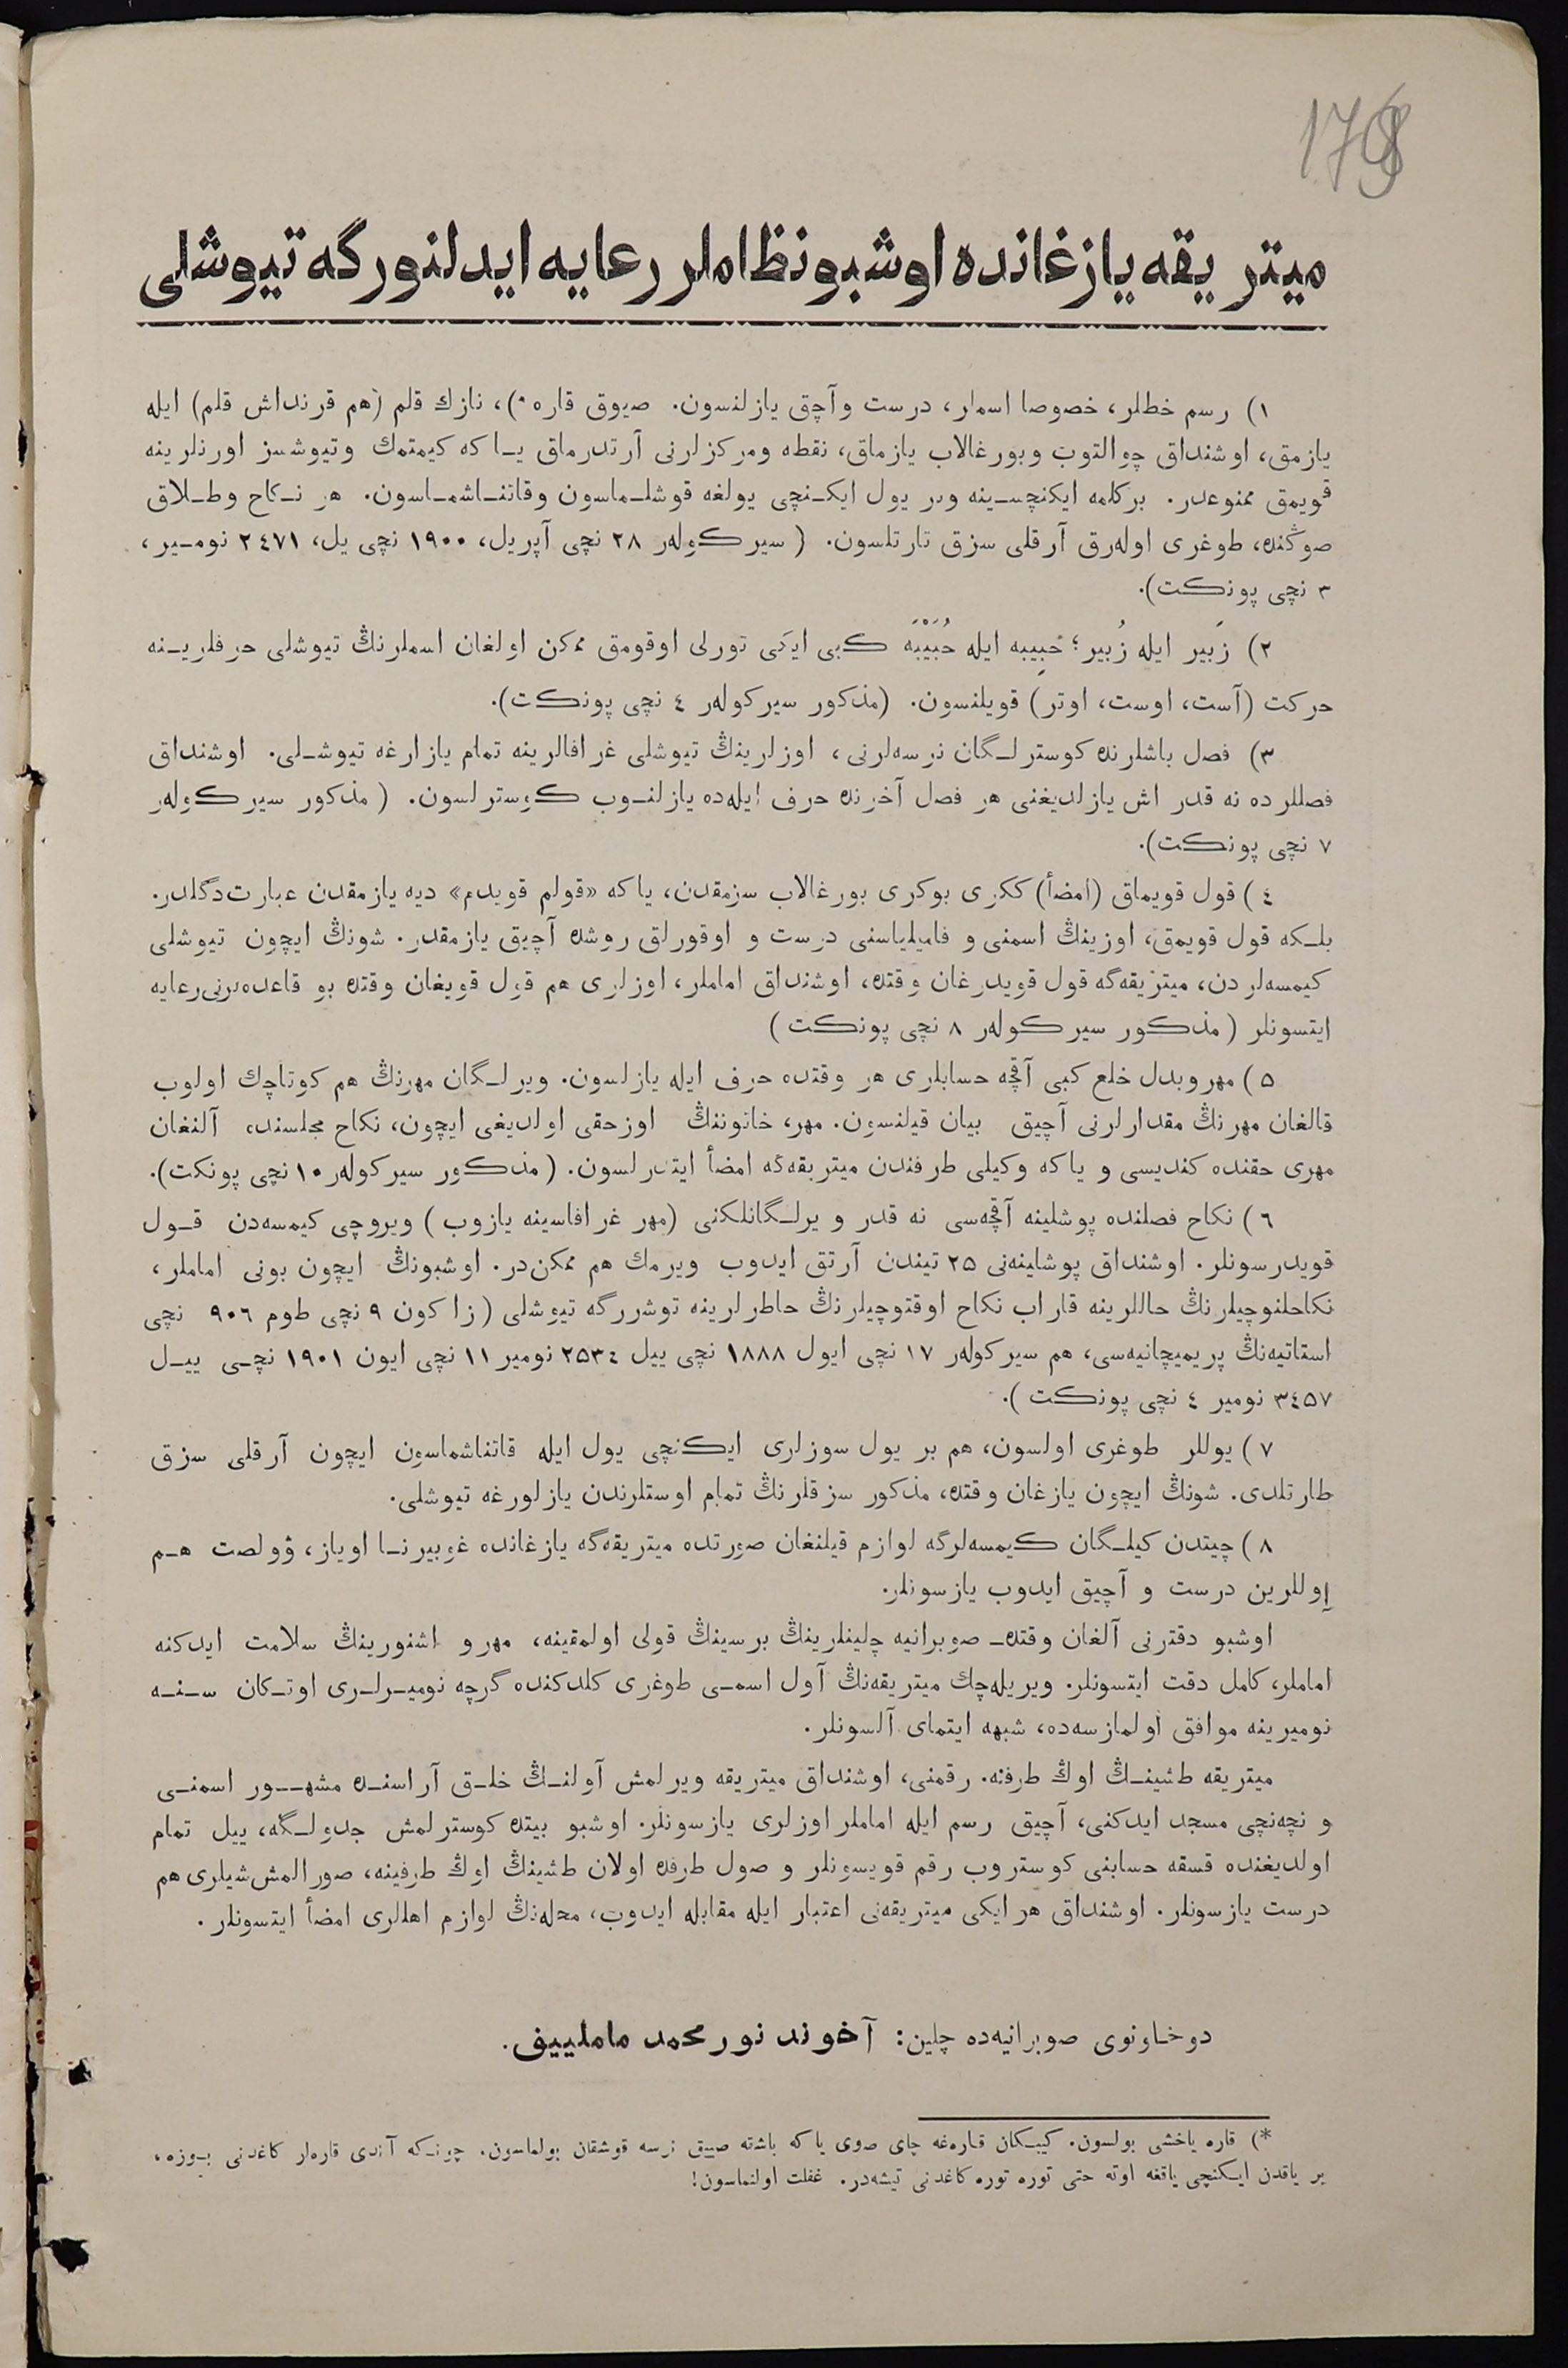 178
ميتريقه يازغانده اوشبو نظاملر رعايه ايدلنورگه تيوشلی
١) رسم خطلر، خصوصا اسملر، درست وآچق يازلنسون. صيوق قاره *)، نازك قلم (هم قرنداش قلم) ايله
يازمق، اوشنداق چوالتوب وبورغالاب يازماق، نقطه ومركزلرنی آرتدرماق يـا كه كيمتمك وتيوشسز اورنلرينه
قويمق ممنوعدر. بركلمه ايكنچسـينه وبر يول ايكـنچی يولغه قوشلـماسون وقاتنـاشمـاسون. هر نـكاح وطـلاق
صوڭنده، طوغری اوله‌رق آرقلی سزق تارتلسون. (سيركوله‌ر ٢٨ نچی آپريل، ١٩٠٠ نچی يل، ٢٤٧١ نومـير،
٣ نچی پونكت).
٢) زَبير ايله زُبير؛ حَبِيبه ايله حُبَيْبَه كبی ايكی تورلی اوقومق ممكن اولغان اسملرنڭ تيوشلی حرفلريـنه
حركت (آست، اوست، اوتر) قويلنسون. (مذكور سيركوله‌ر ٤ نچی پونكت).
٣) فصل باشلرنده كوسترلـگان نرسه‌لرنی، اوزلرينڭ تيوشلی غرافالرينه تمام يازارغه تيوشـلی. اوشنداق
فصللرده نه قدر اش يازلديغنی هر فصل آخرنده حرف ايله‌ده يازلنـوب كوسترلسون. (مذكور سيركوله‌ر
٧ نچی پونكت).
٤) قول قويماق (امضأ) ككری بوكری بورغالاب سزمقدن، ياكه «قولم قويدم» ديه يازمقدن عبارت دگلدر.
بلـكه قول قويمق، اوزينڭ اسمنی و فاميلياسنی درست و اوقورلق روشده آچيق يازمقدر. شونڭ ايچون تيوشلی
كيمسه‌لردن، ميتريقه‌گه قول قويدرغان وقتده، اوشنداق اماملر، اوزلری هم قول قويغان وقتده بو قاعده‌لرنی رعايه
ايتسونلر (مذكور سيركوله‌ر ٨ نچی پونكت)
٥) مهر وبدل خلع كبی آقچه حسابلری هر وقتده حرف ايله يازلسون. ويرلـگان مهرنڭ هم كوتاچك اولوب
قالغان مهرنڭ مقدارلرنی آچيق بيان قيلنسون. مهر، خانوننڭ اوزحقی اولديغی ايچون، نكاح مجلسنده آلنغان
مهری حقنده كنديسی و ياكه وكيلی طرفندن ميتريقه‌گه امضأ ايتدرلسون. (مذكور سيركوله‌ر ١٠ نچی پونكت).
٦) نكاح فصلنده پوشلينه آقچه‌سی نه قدر ويرلـگانلكنی (مهر غرافاسينه يازوب) ويروچی كيمسه‌دن قـول
قويدرسونلر. اوشنداق پوشلينه‌نی ٢٥ تيندن آرتق ايدوب ويرمك هم ممكن‌در. اوشبونڭ ايچون بونی اماملر،
نكاحلنوچيلرنڭ حاللرينه قاراب نكاح اوقتوچيلرنڭ خاطرلرينه توشررگه تيوشلی (زاكون ٩ نچی طوم ٩٠٦ نچی
استاتيه‌نڭ پريميچانيه‌سی، هم سيركوله‌ر ١٧ نچی ايول ١٨٨٨ نچی ييل ٢٥٣٤ نومير ١١ نچی ايون ١٩٠١ نچـی ييـل
٣٤٥٧ نومير ٤ نچی پونكت).
٧) يوللر طوغری اولسون، هم بر يول سوزلری ايكنچی يول ايله قاتناشماسون ايچون آرقلی سزق
طارتلدی. شونڭ ايچون يازغان وقتده، مذكور سزقلرنڭ تمام اوستلرندن يازلورغه تيوشلی.
٨) چيتدن كيلـگان كيمسه‌لرگه لوازم قيلنغان صورتده ميتريقه‌گه يازغانده غوبيرنـا اوياز، ۋولصت هـم
اوللرين درست و آچيق ايدوب يازسونلر.
اوشبو دفترنی آلغان وقتده صوبرانيه چلينلرينڭ برسينڭ قولی اولمقينه، مهر و اشنورينڭ سلامت ايدكنه
اماملر، كامل دقت ايتسونلر. ويريله‌چك ميتريقه‌نڭ آول اسمـی طوغری كلدكنده گرچه نوميـرلـری اوتـكان سـنـه
نوميرينه موافق اولمازسه‌ده، شبهه ايتمای آلسونلر.
ميتريقه طشينـڭ اوڭ طرفنه. رقمنی، اوشنداق ميتريقه ويرلمش آولنـڭ خلـق آراسنـده مشهــور اسمنـی
و نچه‌نچی مسجد ايدكنی، آچيق رسم ايله اماملر اوزلری يازسونلر. اوشبو بيتده كوسترلمش جدولـگه، ييل تمام
اولديغنده قسقه حسابنی كوستروب رقم قويسونلر و صول طرفده اولان طشينڭ اوڭ طرفينه، صورالمش شيلری هم
درست يازسونلر. اوشنداق هر ايكی ميتريقه‌نی اعتبار ايله مقابله ايدوب، محله‌نڭ لوازم اهللری امضأ ايتسونلر.
دوخاونوی صوبرانيه‌ده چلين: آخوند نور محمد ماملييف.
*) قاره ياخشی بولسون. كيبـكان قاره‌غه چای صوی ياكه باشقه صييق نرسه قوشقان بولماسون. چونـكه آندی قاره‌لر كاغدنی بـوزه،
بر ياقدن ايـكنچی ياقغه اوته حتی توره توره كاغدنی تيشه‌در. غفلت اولنماسون!